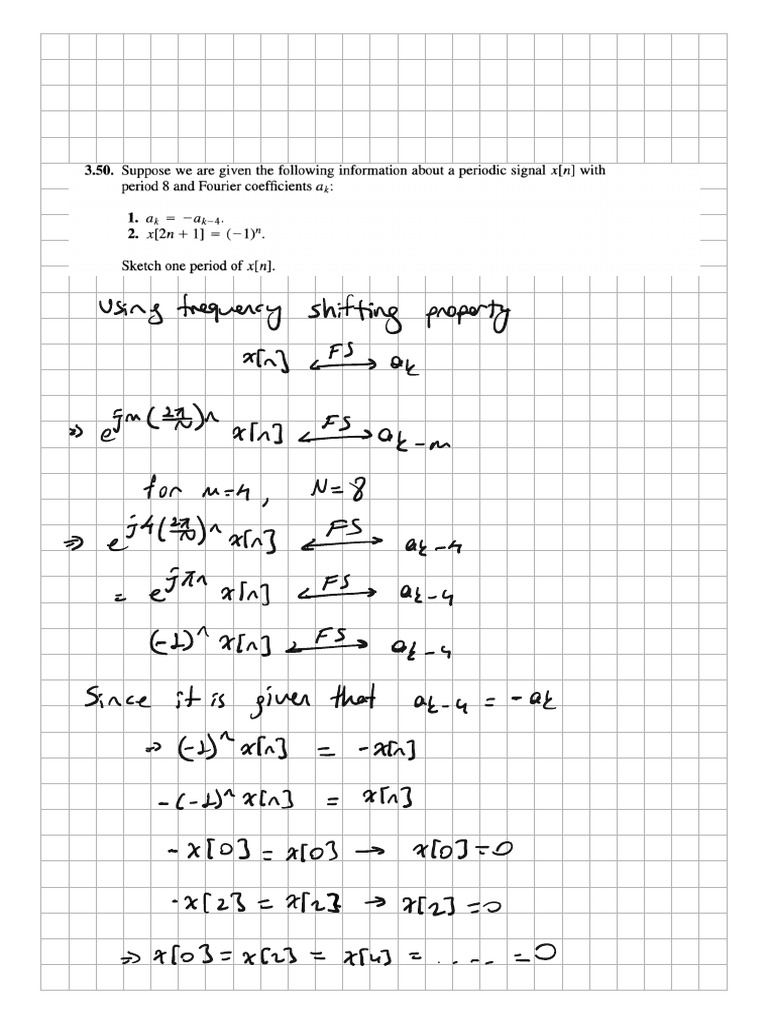 3.50. Suppose we are given the following information about a periodic signal x[n] with
period 8 and Fourier coefficients aₖ:
1. aₖ = −aₖ₋₄.
2. x[2n + 1] = (−1)ⁿ.
Sketch one period of x[n].
Using frequency shifting property
x[n] <—FS—> aₖ
⇒ e^{jm(2π/N)n} x[n] <—FS—> aₖ₋ₘ
for m=4, N=8
⇒ e^{j4(2π/N)n} x[n] <—FS—> aₖ₋₄
= e^{jπn} x[n] <—FS—> aₖ₋₄
(-1)ⁿ x[n] <—FS—> aₖ₋₄
Since it is given that aₖ₋₄ = -aₖ
⇒ (-1)ⁿ x[n] = -x[n]
-(-1)ⁿ x[n] = x[n]
-x[0] = x[0] → x[0]=0
-x[2] = x[2] → x[2]=0
⇒ x[0] = x[2] = x[4] = ..... = 0